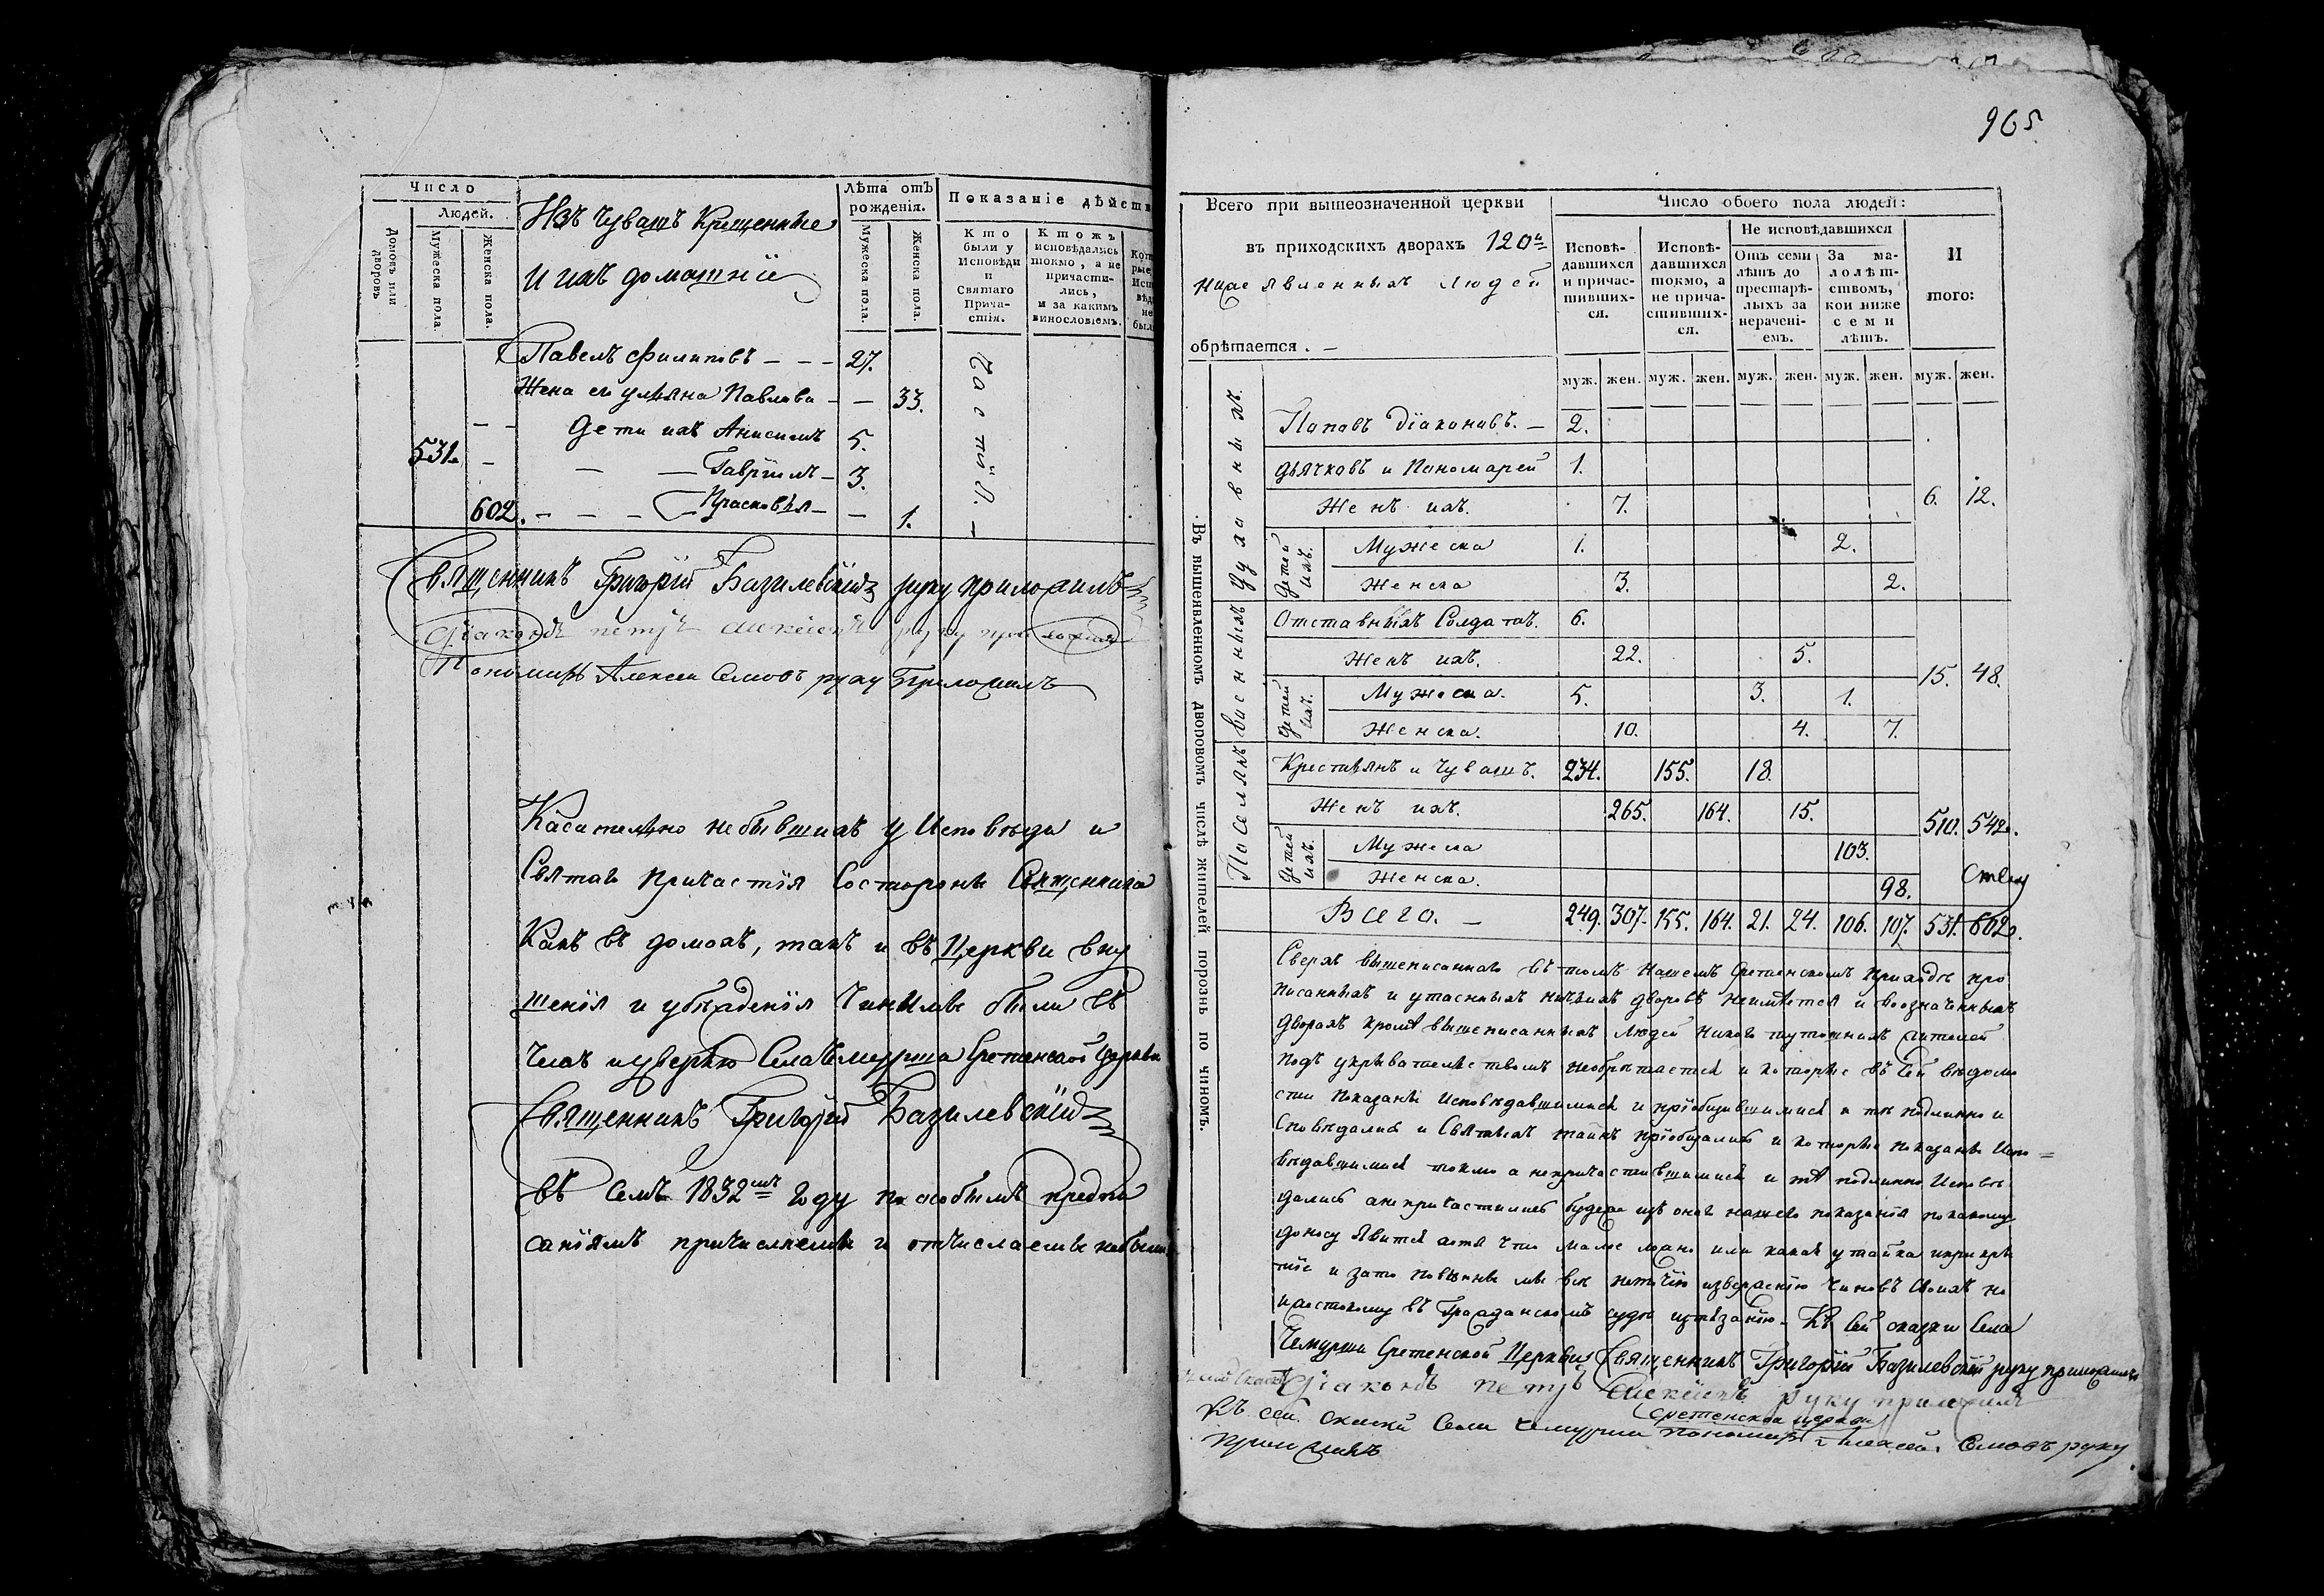 965
Число
Людей.
Домовъ или дворовъ.
Мужеска пола.
Женска пола.
Изъ Чувашъ Крещенные
И ихъ домашнïе
Лѣта отъ рожденïя.
Мужеска пола.
Женска пола.
Показанïе дѣйств
Кто были у Исповѣди и Святаго Прича-стïя.
Ктожъ исповѣдались токмо, а не причасти-лись, и за какимъ винословïемъ.
Павелъ Филиповъ — — — 27.
Жена его Ульяна Павлова — — 33.
Дети ихъ Анисимъ 5.
531. — — — Гаврïилъ — 3.
602. — — — Прасковья — — 1.
Священникъ Григорïй Базилевскïй руку приложилъ
Дïаконъ Петръ Алексеевъ руку приложилъ
Пономарь Алексеи Семовъ руку Приложилъ
Касательно небывшихъ у Исповѣди и
Святаго Причастïя Состороны Священника
Какъ въ домахъ, такъ и въ Церкви вну
шенïя и убѣжденïя Чинимы были въ
Чемъ и уверяю Села Чемурша Сретенской Церкви
Священникъ Григорïй Базилевскïй
Въ Семъ 1832мъ Году по особымъ предпи
санïямъ причисляемы и отчисляемы небыли
Всего при вышеозначенной церкви
въ приходскихъ дворахъ 120и
ниже явленныхъ людей
обрѣтается. —
Число обоего пола людей:
Исповѣ-давшихся и причас-тивших-ся.
Исповѣ-давшихся токмо, а не прича-стивших-ся.
Не исповѣдавшихся
Отъ семи лѣтъ до престарѣ-лыхъ за нерачені-емъ.
За ма-лолѣт-ствомъ, кои ниже семи лѣтъ.
И того:
муж. жен. муж. жен. муж. жен. муж. жен. муж. жен.
Въ вышеявленномъ дворовомъ числѣ жителей порознь по чиномъ.
Духовныхъ
Поповъ Дïаконовъ. — 2.
Дьячковъ и Пономарей 1.
Женъ ихъ. 7. 6. 12.
Детей ихъ.
Мужеска 1. 2.
Женска 3. 2.
Военныхъ
Отставныхъ Солдатъ. 6.
Женъ ихъ. 22. 5. 15. 48.
Детей ихъ.
Мужеска. 5. 3. 1.
Женска. 10. 4. 7.
Поселянъ
Крестьянъ и Чувашъ. 234. 155. 18.
Женъ ихъ. 265. 164. 15. 510. 542.
Детей ихъ.
Мужеска 103.
Женска. 98.
Всего. — 249. 307. 155. 164. 21. 24. 106. 107. 531. 602.
Сверхъ вышеписаннаго въ томъ Нашемъ Сретенскомъ Приходѣ про
писанныхъ и утаенныхъ ничьихъ дворовъ неимѣется и воозначенныхъ
дворахъ кромѣ вышеписанныхъ людей никого тутошнихъ жителей
подъ укрывательствомъ необретается и которые въ Сей ведомо
сти показаны исповедавшимися и прïобщившимися и те подлинно и
споведались и Святыхъ таинъ прïобщались и которые показаны Испо
ведавшимися токмо а непричастившимися и тѣ подлинно Исповѣ
дались а не причастились будеже изъ онаго нашего показанïя по какому
доносу явится хотя что мало ложно или какая утайка и прикры
тïе и зато повинны мы все неточïю извержению Чиновъ Своихъ но
и жестокому въ Гражданскомъ суде истязанïю. Къ Сей сказки Села
Чемурши Сретенской Церкви Священникъ Григорïй Базилевскïй руку приложилъ
Дïаконъ Петръ Алексеевъ руку приложилъ
Къ сей скаски Села Чемурши Сретенской церкви пономарь Алексей Семовъ руку
приложилъ